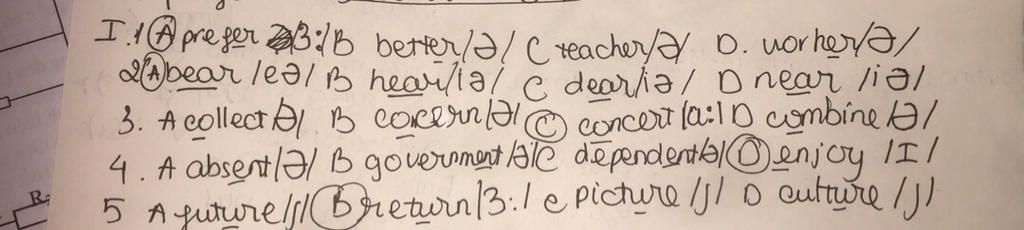 I.1 A prefer /3:/ B better /ə/ C teacher /ə/ D. worher /ə/
2 A bear /eə/ B hear /iə/ C dear /iə/ D near /iə/
3. A collect /ə/ B cocern /ə/ C concert /a:/ D combine /ə/
4. A absent /ə/ B government /ə/ C dependent /ə/ D enjoy /I/
5 A future /ʃ/ B return /3:/ c picture /ʃ/ D culture /ʃ/
R